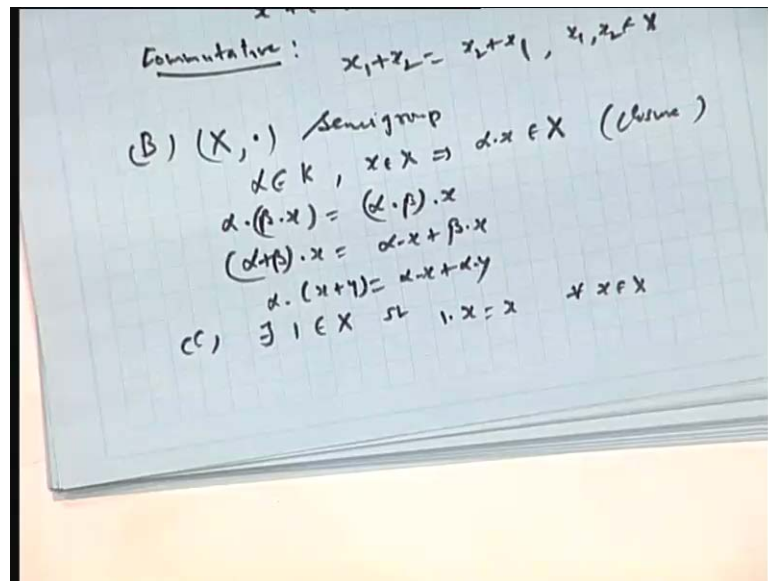 Commutative : x₁+x₂ = x₂+x₁ , x₁, x₂ ∈ X
(B) (X, ·) Semigroup
α ∈ K , x ∈ X ⇒ α·x ∈ X (Closure)
α·(β·x) = (α·β)·x
(α+β)·x = α·x + β·x
α·(x+y) = α·x + α·y
(C) ∃ 1 ∈ X st 1·x = x ∀ x ∈ X